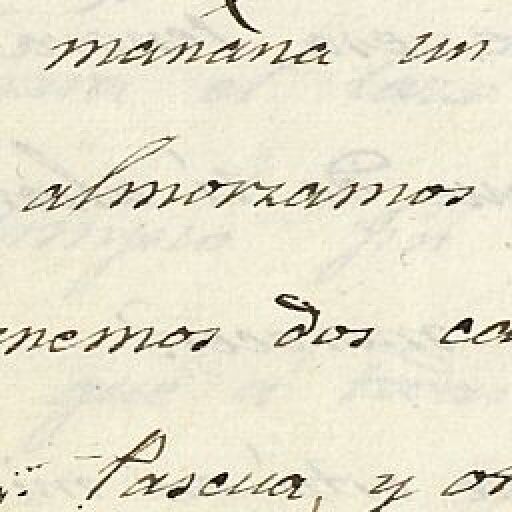 mañana un
almorzamos
nemos dos ca
Pascua, y or